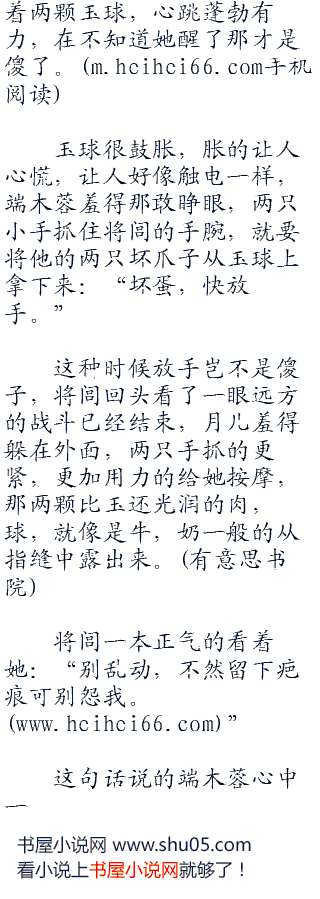 着两颗玉球，心跳蓬勃有
力，在不知道她醒了那才是
傻了。(m.hcihci66.com手机
阅读)
玉球很鼓胀，胀的让人
心慌，让人好像触电一样，
端木蓉羞得那敢睁眼，两只
小手抓住将闾的手腕，就要
将他的两只坏爪子从玉球上
拿下来：“坏蛋，快放
手。”
这种时候放手岂不是傻
子，将闾回头看了一眼远方
的战斗已经结束，月儿羞得
躲在外面，两只手抓的更
紧，更加用力的给她按摩，
那两颗比玉还光润的肉，
球，就像是牛，奶一般的从
指缝中露出来。(有意思书
院)
将闾一本正气的看着
她：“别乱动，不然留下疤
痕可别怨我。
(www.hcihci66.com)”
这句话说的端木蓉心中
一
书屋小说网 www.shu05.com
看小说上书屋小说网就够了！